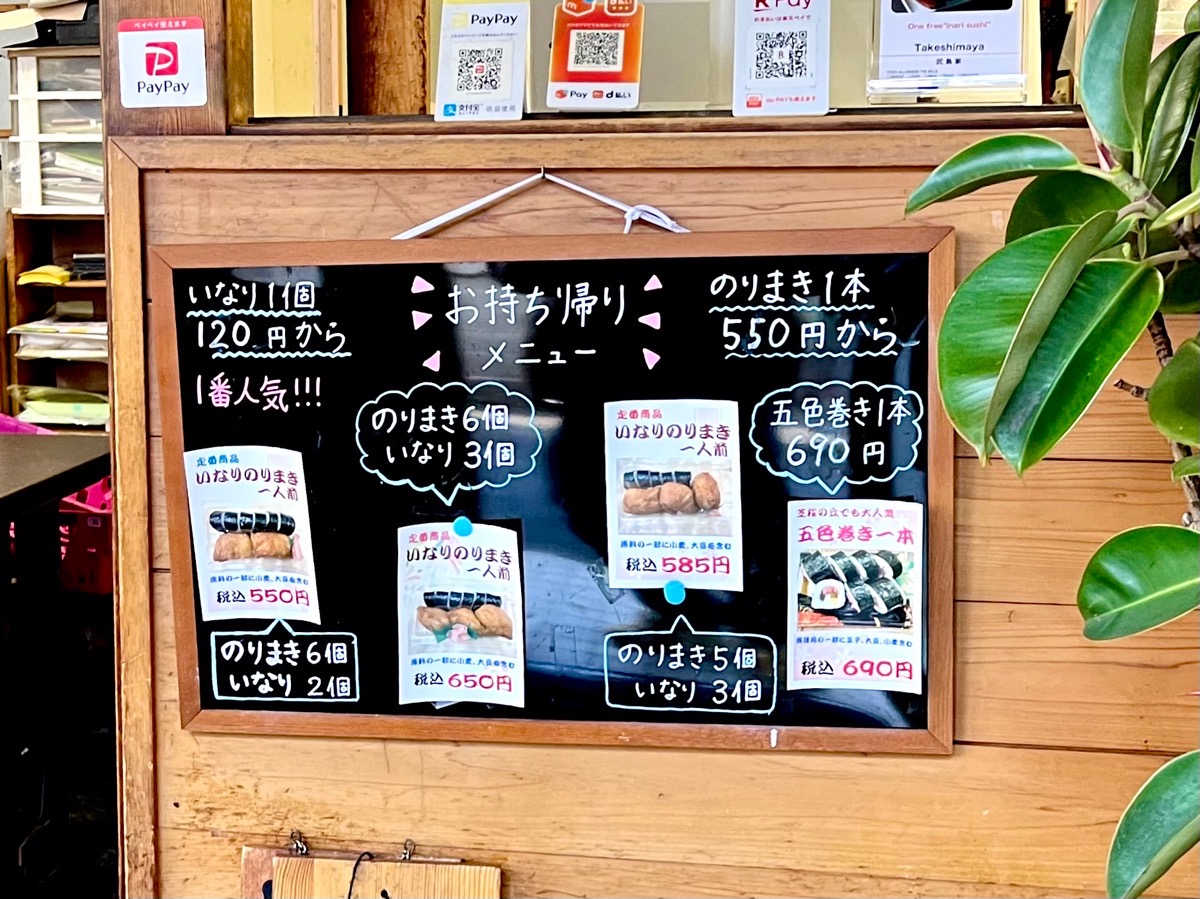 ペイペイ使えます
PayPay
PayPay
支付宝
欢迎使用
Pay
d払い
Pay
One free"Inari sushi"
Takeshimaya
いなり1個
120円から
1番人気!!!
お持ち帰り
メニュー
のりまき1本
550円から
定番商品
いなりのりまき
一人前
原料の一部に小麦、大豆を含む
税込550円
のりまき6個
いなり 2個
のりまき6個
いなり 3個
定番商品
いなりのりまき
一人前
原料の一部に小麦、大豆を含む
税込650円
定番商品
いなりのりまき
一人前
原料の一部に小麦、大豆を含む
税込585円
のりまき5個
いなり 3個
五色巻き1本
690円
芝桜の丘でも大人気
五色巻き一本
税込690円